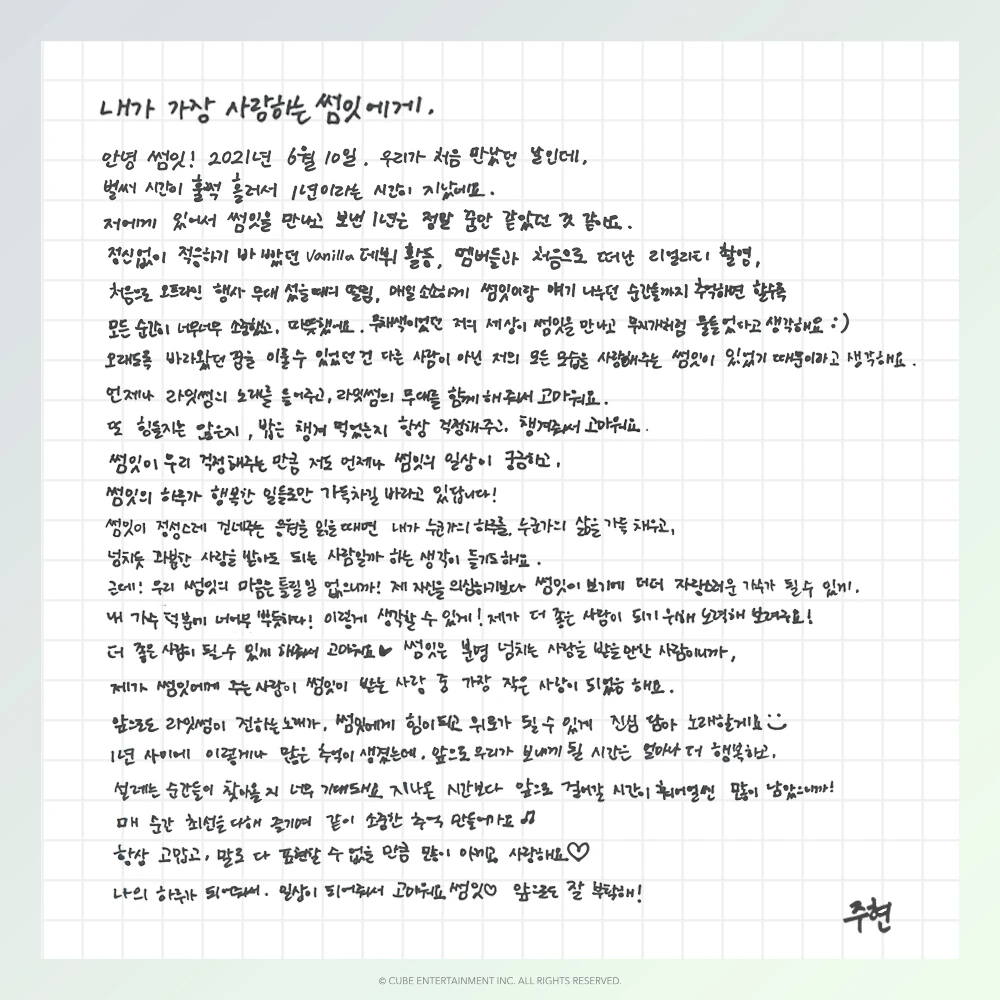 내가 가장 사랑하는 썸잇에게.
안녕 썸잇! 2021년 6월 10일. 우리가 처음 만났던 날인데,
벌써 시간이 훌쩍 흘러서 1년이라는 시간이 지났네요.
저에게 있어서 썸잇을 만나고 보낸 1년은 정말 꿈만 같았던 것 같아요.
정신없이 적응하기 바빴던 Vanilla 데뷔 활동, 멤버들과 처음으로 떠난 리얼리티 촬영,
처음으로 오프라인 행사 무대 섰을때의 떨림, 매일 소소하게 썸잇이랑 얘기 나누던 순간들까지 추억하면 할수록
모든 순간이 너무너무 소중했고, 따뜻했어요. 무채색이었던 저의 세상이 썸잇을 만나고 무지개처럼 물들었다고 생각해요 :)
오래도록 바라왔던 꿈을 이룰 수 있었던 건 다른 사람이 아닌 저의 모든 모습을 사랑해주는 썸잇이 있었기 때문이라고 생각해요.
언제나 라잇썸의 노래를 들어주고, 라잇썸의 무대를 함께 해줘서 고마워요.
또 힘들지는 않은지, 밥은 챙겨 먹었는지 항상 걱정해주고, 챙겨줘서 고마워요.
썸잇이 우리 걱정해주는 만큼 저도 언제나 썸잇의 일상이 궁금하고,
썸잇의 하루가 행복한 일들로만 가득차길 바라고 있답니다!
썸잇이 정성스레 건네주는 응원을 읽을 때면 내가 누군가의 하루를, 누군가의 삶을 가득 채우고,
넘치듯 과분한 사랑을 받아도 되는 사람일까 하는 생각이 들기도해요.
근데! 우리 썸잇의 마음은 틀릴 일 없으니까! 제 자신을 의심하기보다 썸잇이 보기에 더더 자랑스러운 가수가 될 수 있게.
내 가수 덕분에 너어무 뿌듯하다! 이렇게 생각할 수 있게! 제가 더 좋은 사람이 되기 위해 노력해 보려구요!
더 좋은 사람이 될 수 있게 해줘서 고마워요♥ 썸잇은 분명 넘치는 사랑을 받을만한 사람이니까,
제가 썸잇에게 주는 사랑이 썸잇이 받는 사랑 중 가장 작은 사랑이 되었음 해요.
앞으로도 라잇썸이 전하는 노래가, 썸잇에게 힘이 되고 위로가 될 수 있게 진심 담아 노래할게요 :)
1년 사이에 이렇게나 많은 추억이 생겼는데. 앞으로 우리가 보내게 될 시간은 얼마나 더 행복하고,
설레는 순간들이 찾아올지 너무 기대돼요 지나온 시간보다 앞으로 걸어갈 시간이 훠어얼씬 많이 남았으니까!
매 순간 최선을 다해 즐기며 같이 소중한 추억 만들어가요♫
항상 고맙고, 말로 다 표현할 수 없을 만큼 많이 아끼고 사랑해요♡
나의 하루가 되어줘서. 일상이 되어줘서 고마워요 썸잇♡ 앞으로도 잘 부탁해!
주현
© CUBE ENTERTAINMENT INC. ALL RIGHTS RESERVED.